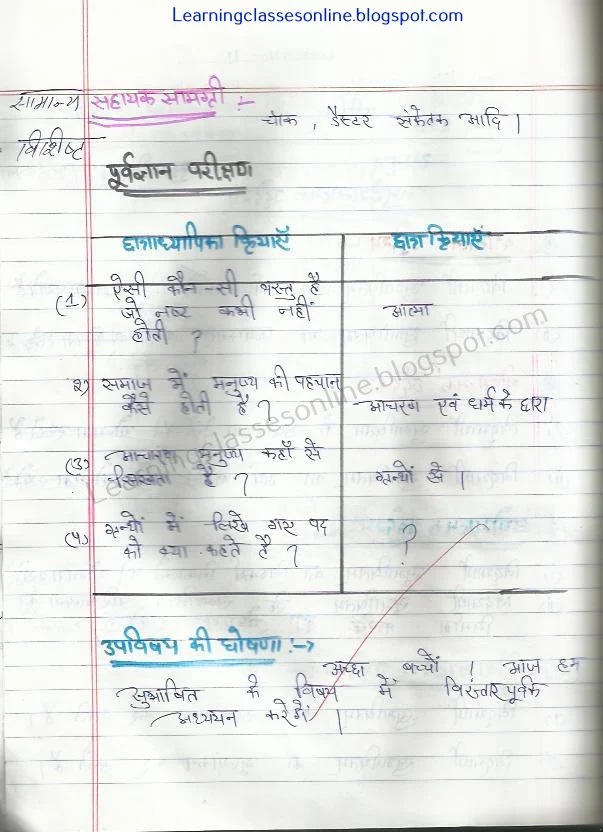 Learningclassesonline.blogspot.com
सामान्य सहायक सामग्री :-
चॉक , डैस्टर संकेतक आदि ।
विशिष्ट
पूर्वज्ञान परीक्षण
छात्राध्यापिका क्रियाएँ छात्र क्रियाएँ
(1) ऐसी कौन-सी वस्तु है
जो नष्ट कभी नहीं आत्मा
होती ?
२) समाज में मनुष्य की पहचान
कैसे होती है ? आचरण एवं धर्म के द्वारा
(३) आचरण मनुष्य कहाँ से
सिखता है ? ग्रन्थों से ।
(४) ग्रन्थों में लिखे गए पद ?
को क्या कहते है ?
उपविषय की घोषणा :->
अच्छा बच्चों ! आज हम
सुभाषित के विषय में विस्तारपूर्वक
अध्ययन करेगें ।
Learningclassesonline.blogspot.com